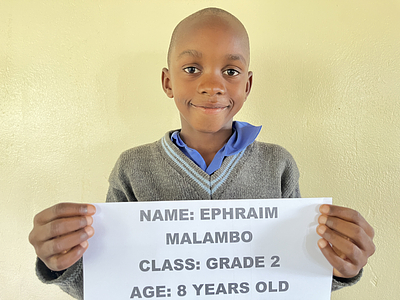 NAME: EPHRAIM
MALAMBO
CLASS: GRADE 2
AGE: 8 YEARS OLD